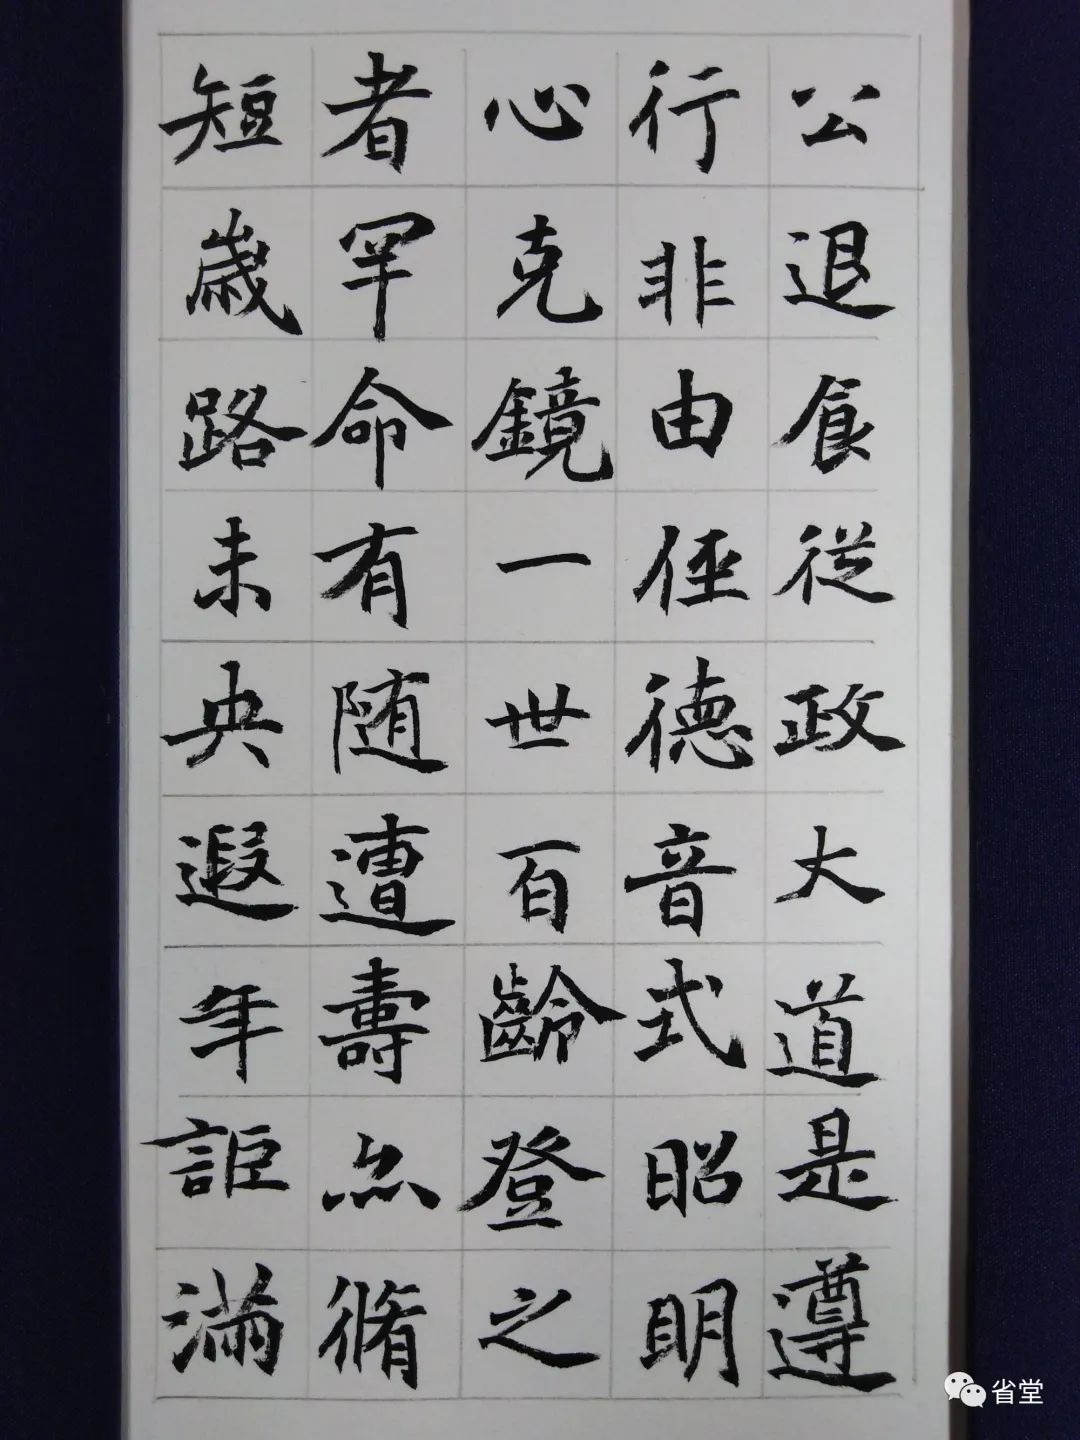 公退食從政大道是遵
行非由侄德音式昭明
心克鏡一世百齡登之
者罕命有随遭壽亦脩
短歲路未央遐年詎滿
省堂